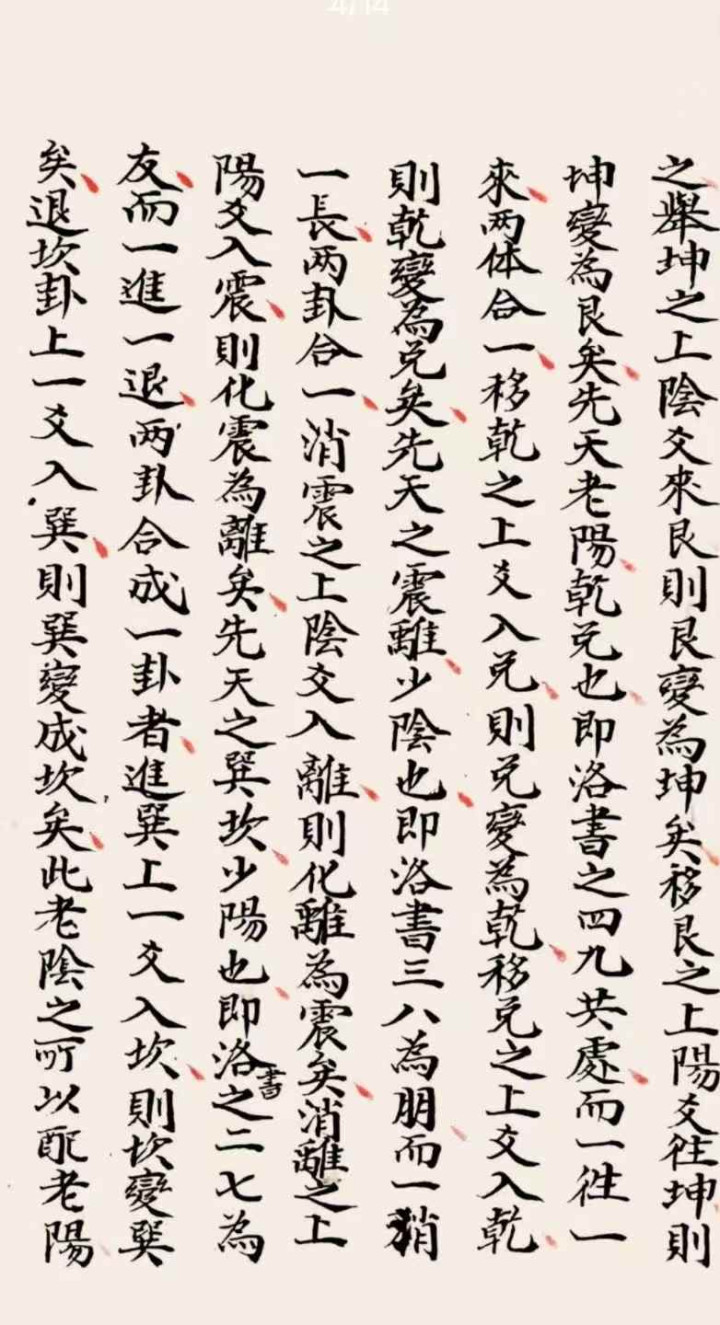 之舉坤之上陰爻來艮則艮變為坤矣移艮之上陽爻往坤則
坤變為艮矣先天老陽乾兌也即洛書之四九共處而一往一
來两体合一移乾之上爻入兌則兌變為乾移兌之上爻入乾
則乾變為兌矣先天之震離少陰也即洛書三八為朋而一消
一長两卦合一消震之上陰爻入離則化離為震矣消離之上
陽爻入震則化震為離矣先天之巽坎少陽也即洛書之二七為
友而一進一退两卦合成一卦者進巽上一爻入坎則坎變巽
矣退坎卦上一爻入巽則巽變成坎矣此老陰之所以配老陽